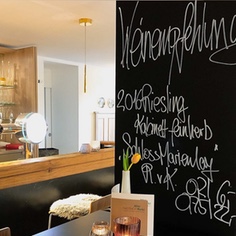 Weinempfehlung
2016 Riesling
Kabinett feinherb
Schloss Marienlay
P.v.K.
0,2l
0,75l 22,-